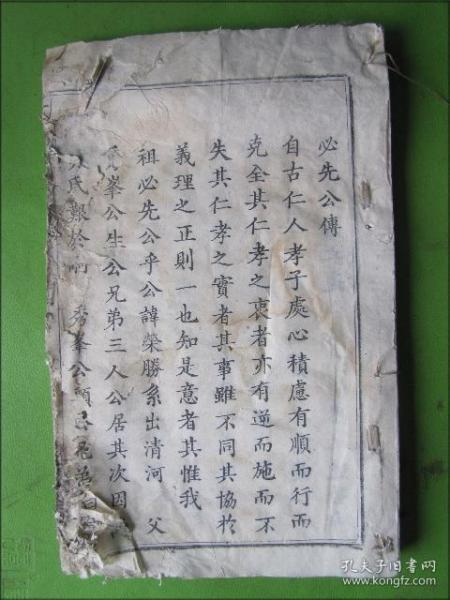 必先公傳
自古仁人孝子處心積慮有順而行而
克全其仁孝之衷者亦有逆而施而不
失其仁孝之實者其事雖不同其協於
義理之正則一也知是意者其惟我
祖必先公乎公諱榮勝系出清河 父
秀峯公生公兄弟三人公居其次因
氏艱於嗣 秀峯公
孔夫子旧书网
www.kongfz.com